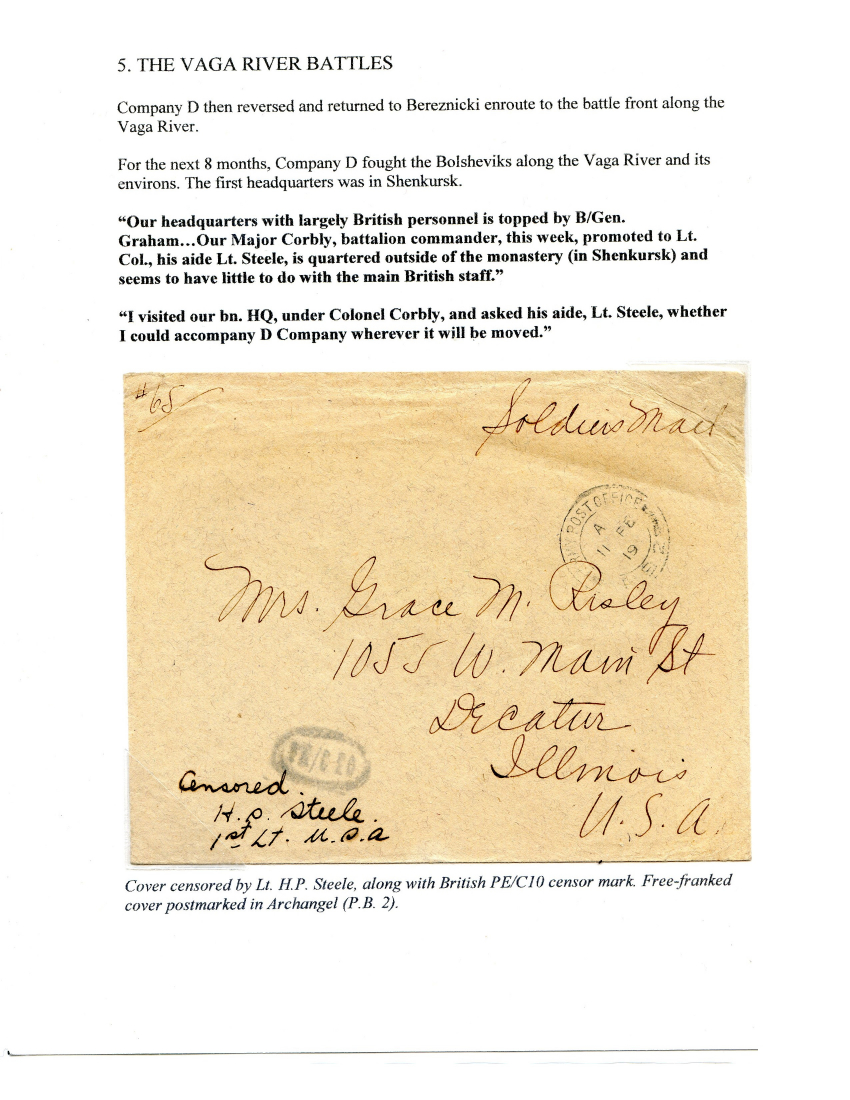 5. THE VAGA RIVER BATTLES
Company D then reversed and returned to Bereznicki enroute to the battle front along the
Vaga River.
For the next 8 months, Company D fought the Bolsheviks along the Vaga River and its
environs. The first headquarters was in Shenkursk.
“Our headquarters with largely British personnel is topped by B/Gen.
Graham…Our Major Corbly, battalion commander, this week, promoted to Lt.
Col., his aide Lt. Steele, is quartered outside of the monastery (in Shenkursk) and
seems to have little to do with the main British staff.”
“I visited our bn. HQ, under Colonel Corbly, and asked his aide, Lt. Steele, whether
I could accompany D Company wherever it will be moved.”
#65
Soldiers Mail
POST OFFICE
A
11 FE
19
Mrs. Grace M. Risley
1055 W. Main St
Decatur
Illinois
U.S.A.
PE/C10
Censored.
H.P. Steele.
1st Lt. U.S.A
Cover censored by Lt. H.P. Steele, along with British PE/C10 censor mark. Free-franked
cover postmarked in Archangel (P.B. 2).